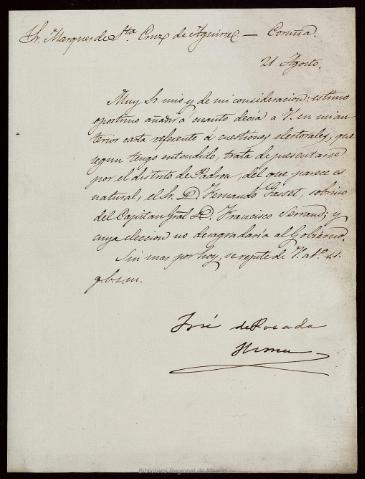 Sr. Marques de Sta. Cruz de Aguirre — Coruña.
21 Agosto.
Muy Sr. mio y de mi consideracion: estimo
oportuno añadir á cuanto decia á V. en mi an-
terior carta referente á cuestiones electorales, que
segun tengo entendido, trata de presentarse
por el distrito de Padron, del que parece es
natural, el Sr. D. Fernando Gasset, sobrino
del Capitan Gral. D. Francisco Serrano, y
cuya eleccion no desagradaria al Gobierno.
Sin mas por hoy, se repite de V. af.º s.s.
q.b.s.m.
José de Posada
Herrera
Biblioteca Regional de Madrid